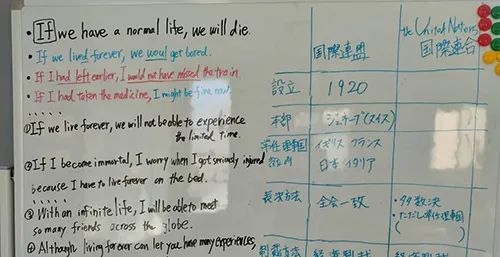 • If we have a normal life, we will die.
• If we lived forever, we woul get bored.
• If I had left earlier, I would not have missed the train.
• If I had taken the medicine, I might be fine now.
① If we live forever, we will not be able to experience
the limited time.
② If I become immortal, I worry when I got seriously injured
because I have to live forever on the bed.
③ With an infinite life, I will be able to meet
so many friends across the globe.
④ Although living forever can let you have many experiences,
国際連盟
the United Nations
国際連合
設立 1920
本部 ジュネーブ(スイス)
常任理事国 イギリス フランス
日本 イタリア
全会一致
・多数決
・ただし常任理事国
( )